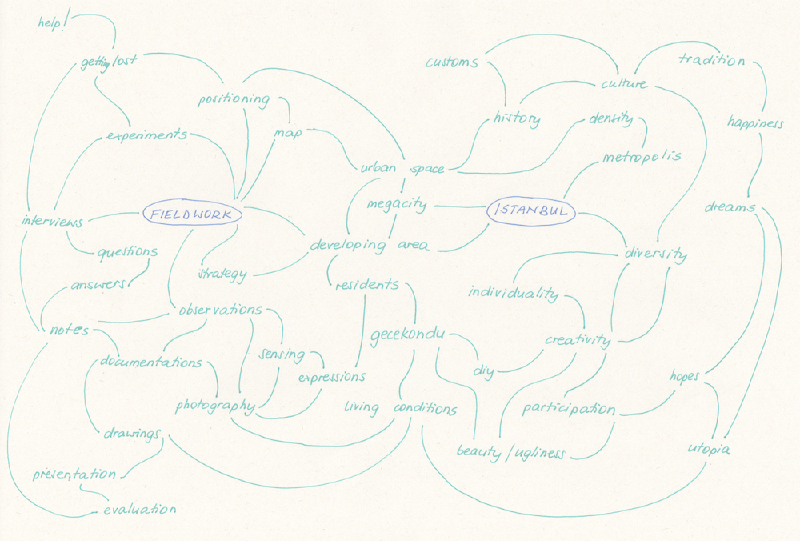 help!
getting lost
customs
culture
tradition
positioning
map
history
density
happiness
experiments
urban space
metropolis
interviews
FIELDWORK
megacity
ISTANBUL
dreams
questions
developing area
diversity
answers
strategy
residents
individuality
observations
notes
gecekondu
creativity
documentations
sensing
expressions
diy
hopes
photography
living conditions
participation
drawings
beauty/ugliness
utopia
presentation
evaluation